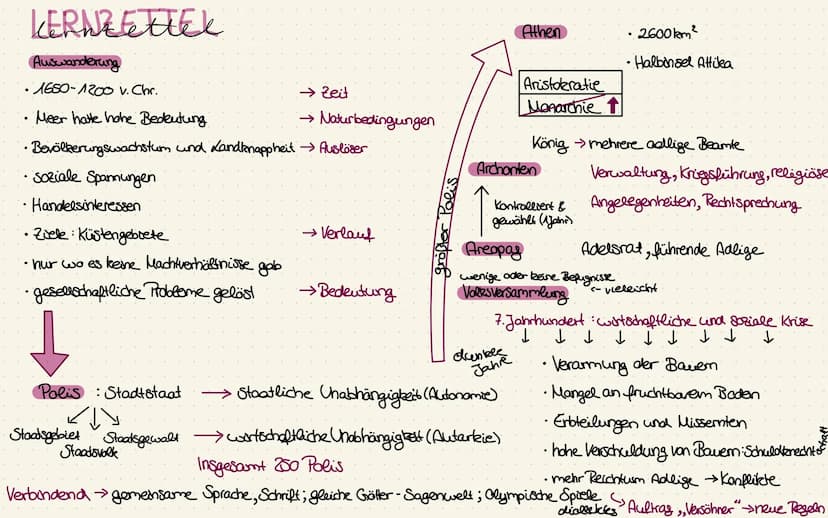 LERNZETTEL
Lernzettel
Auswanderung
· 1650-1200 v. Chr. → Zeit
· Meer hatte hohe Bedeutung → Naturbedingungen
· Bevölkerungswachstum und Landknappheit → Auslöser
· soziale Spannungen
· Handelsinteressen
· Ziele: Küstengebiete → Verlauf
· nur wo es keine Machtverhältnisse gab
· gesellschaftliche Probleme gelöst → Bedeutung
Polis : Stadtstaat → Staatliche Unabhängigkeit (Autonomie)
Staatsgebiet Staatsvolk Staatsgewalt → wirtschaftliche Unabhängigkeit (Autarkie)
Insgesamt 250 Polis
Verbindend → gemeinsame Sprache, Schrift; gleiche Götter - Sagenwelt; Olympische Spiele
größter Polis
dunkle Jahre
Athen
· 2600 km²
· Halbinsel Attika
Aristokratie
Monarchie ↑
König → mehrere adlige Beamte
Archonten
Verwaltung, Kriegsführung, religiöse
Angelegenheiten, Rechtsprechung
kontrolliert &
gewählt (1 Jahr)
Areopag
Adelsrat, führende Adlige
wenige oder keine Befugnisse
Volksversammlung <- vielleicht
7. Jahrhundert : wirtschaftliche und soziale Krise
· Verarmung der Bauern
· Mangel an fruchtbarem Boden
· Erbteilungen und Missernten
· hohe Verschuldung von Bauern: Schuldknechtschaft
· mehr Reichtum Adlige → Konflikte
Auftrag „Versöhner" → neue Regeln